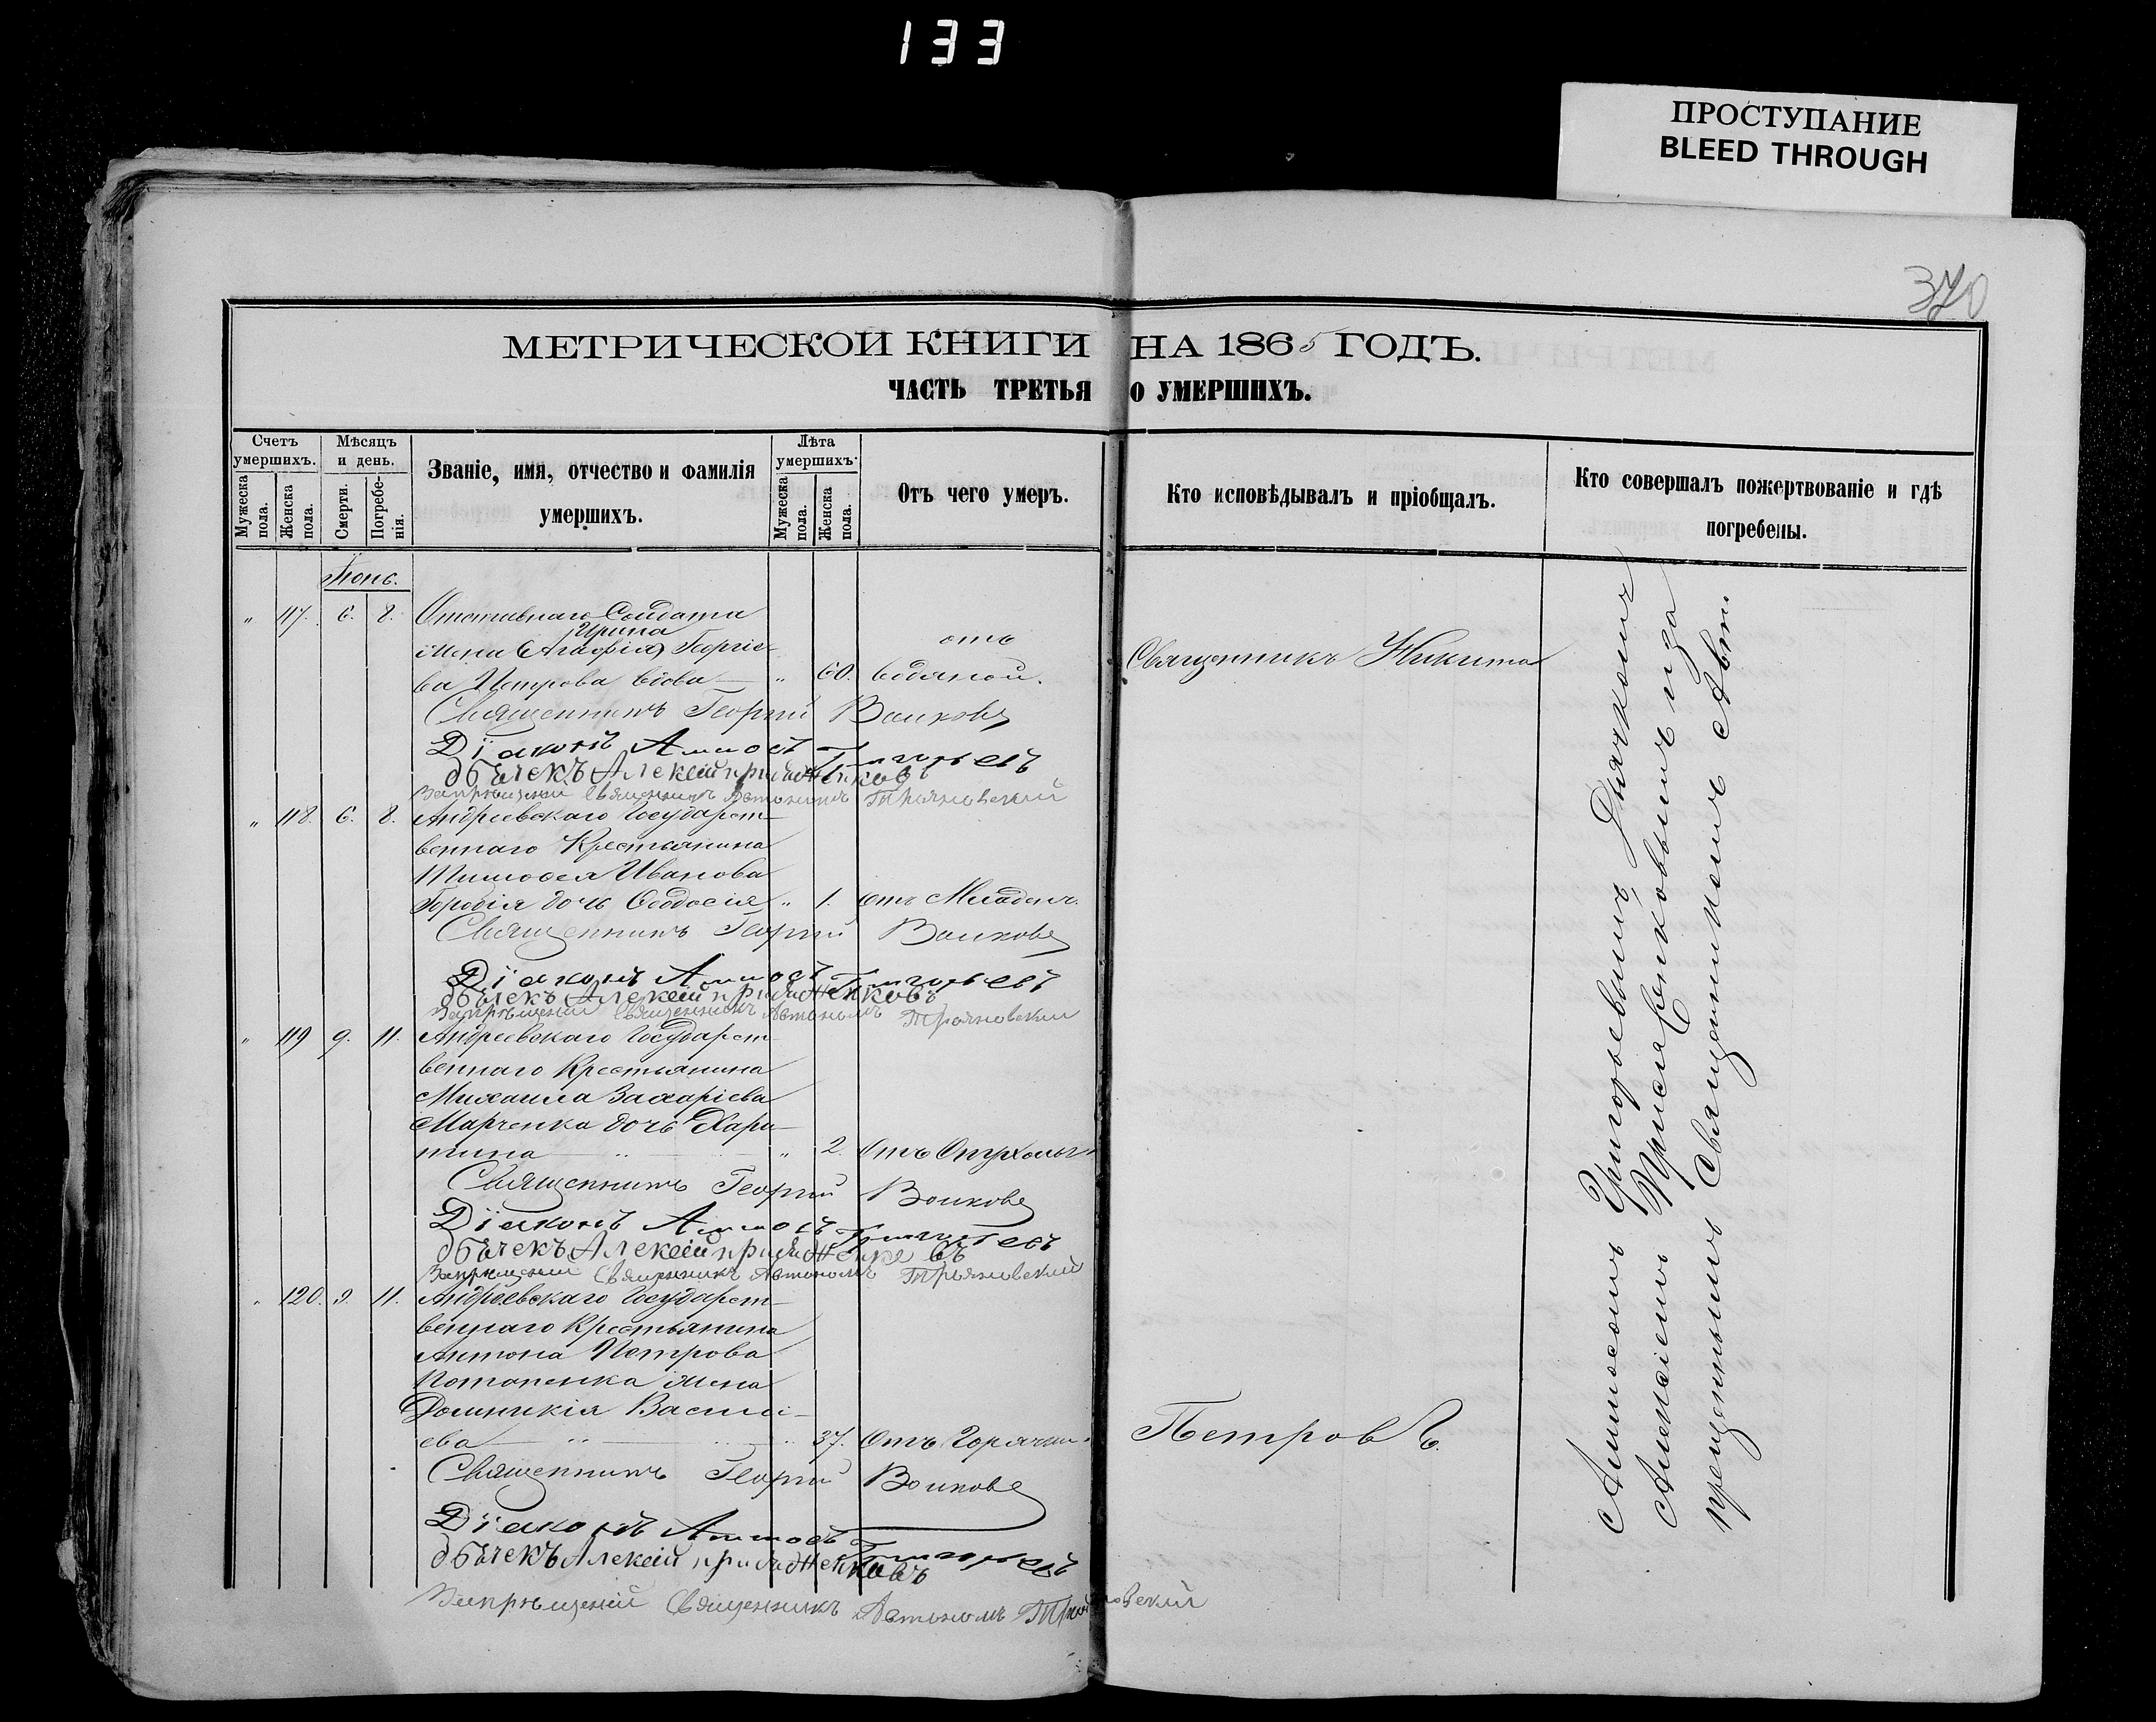 133
ПРОСТУПАНИЕ
BLEED THROUGH
370
МЕТРИЧЕСКОЙ КНИГИ НА 1865 ГОДЪ.
ЧАСТЬ ТРЕТЬЯ О УМЕРШИХЪ.
Счетъ умершихъ.
Мужеска пола.
Женска пола.
Мѣсяцъ и день.
Смерти.
Погребенія.
Званіе, имя, отчество и фамилія
умершихъ.
Лѣта умершихъ.
Мужеска пола.
Женска пола.
Отъ чего умеръ.
Кто исповѣдывалъ и пріобщалъ.
Кто совершалъ пожертвованіе и гдѣ
погребены.
Іюнь.
" 117. 6. 8. Отставнаго Солдата
Ирина
жена (Агафія) Георгіе-
ва Петрова вдова " 60. отъ водяной. Священникъ Никита
Священникъ Георгій Волковъ
Діаконъ Аммосъ Григорьевъ
дьячекъ Алексій
Запрещеный Священникъ Автономъ Трояновскій
" 118. 6. 8. Андреевскаго Государст-
веннаго Крестьянина
Тимофея Иванова
дочь Феодосія " 1. отъ Младенч.
Священникъ Георгій Волковъ
Діаконъ Аммосъ Григорьевъ
дьячекъ Алексій
Запрещеный Священникъ Автономъ Трояновскій
" 119 9. 11. Андреевскаго Государст-
веннаго Крестьянина
Михаила Захаріева
Марченка дочь Хари-
тина " 2. Отъ
Священникъ Георгій Волковъ
Діаконъ Аммосъ Григорьевъ
дьячекъ Алексій
Запрещеный Священникъ Автономъ Трояновскій
" 120. 9. 11. Андреевскаго Государст-
веннаго Крестьянина
Антона Петрова
Потапенка жена
Домникія Василі-
ева " 37. Отъ Горячки. Петровъ.
Священникъ Георгій Волковъ
Діаконъ Аммосъ Григорьевъ
дьячекъ Алексій
Запрещеный Священникъ Автономъ Трояновскій
Аммосомъ Григорьевымъ, Дьячкомъ
Алексіемъ и за
прещеннымъ Священникомъ Авт.